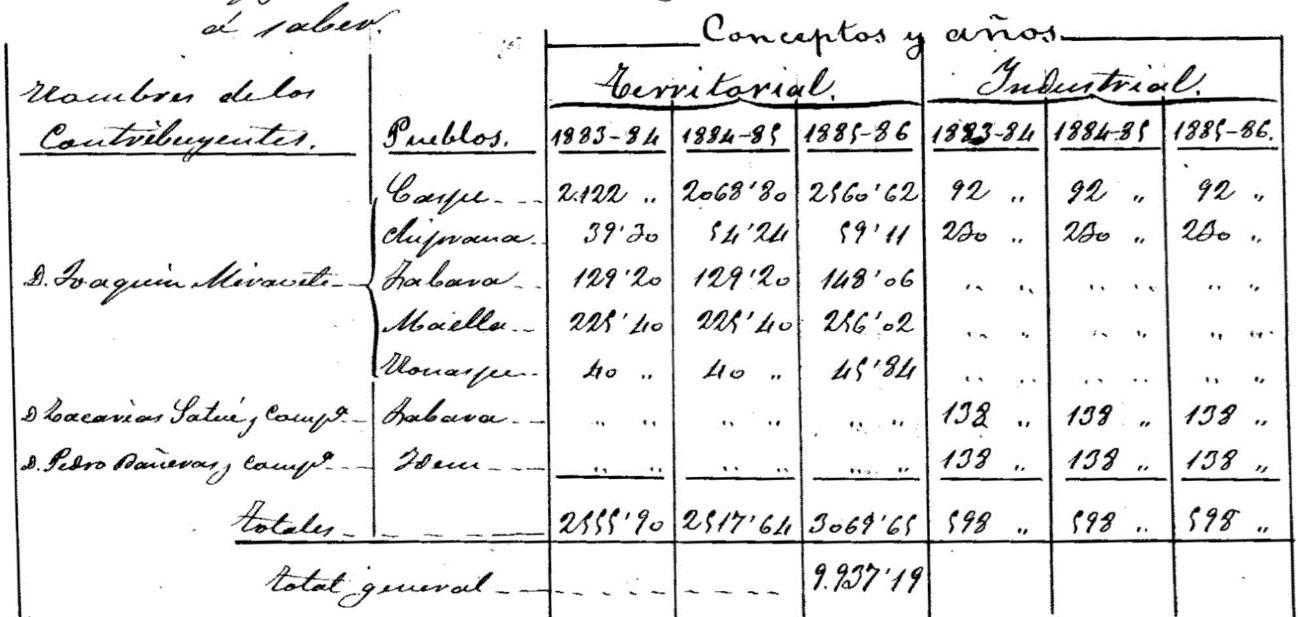 á saber.
Conceptos y años
Nombres de los Territorial. Industrial.
Contribuyentes. Pueblos. 1883-84 1884-85 1885-86 1883-84 1884-85 1885-86.
Caspe 2.122 " 2068'80 2560'62 92 " 92 " 92 "
Chiprana 39'30 54'24 59'11 230 " 230 " 230 "
D. Joaquin Miravete Fabara 129'20 129'20 148'06 " " " " " "
Maella 225'40 225'40 256'02 " " " " " "
Nonaspe 40 " 40 " 45'84 " " " " " "
D Zacarias Satué y Compª Fabara " " " " " " 138 " 138 " 138 "
D. Pedro Bañeras y Compª Idem " " " " " " 138 " 138 " 138 "
Totales 2555'90 2517'64 3069'65 598 " 598 " 598 "
Total general 9.937'19